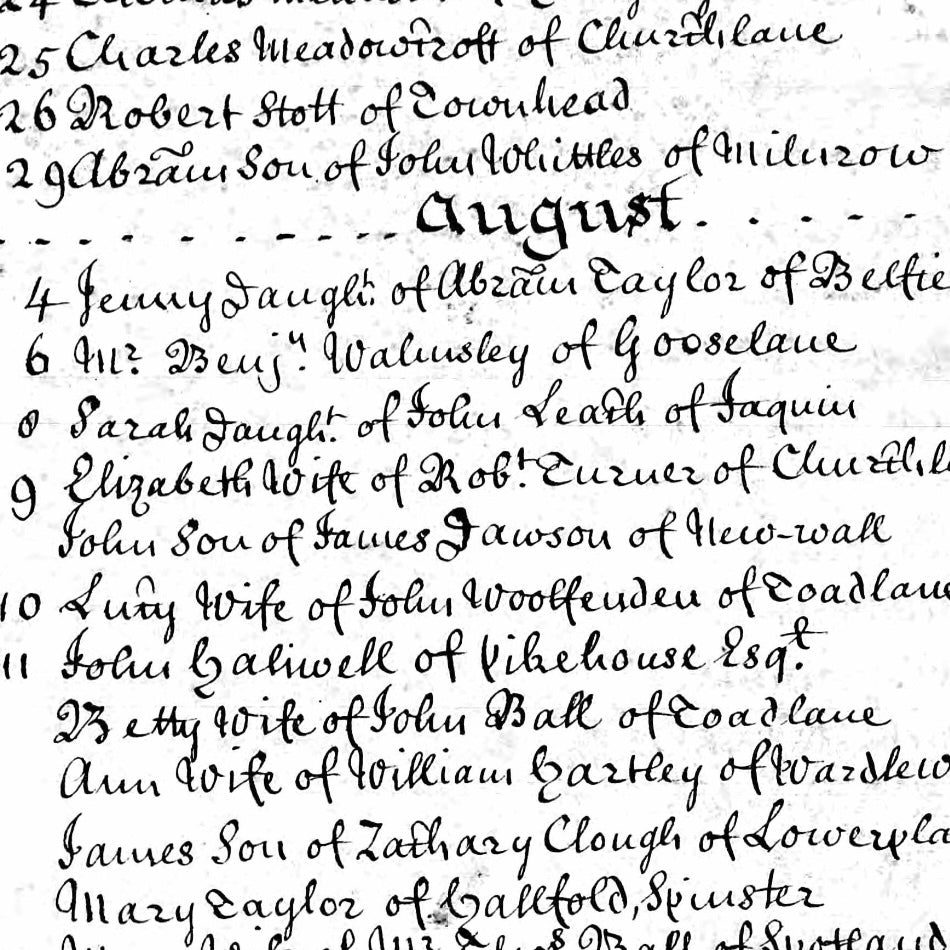 25 Charles Meadowcroft of Churchlane
26 Robert Stott of Townhead
29 Abram Son of John Whittles of Milnrow
August
4 Jenny Daught. of Abram Taylor of Belfie
6 Mr. Benjn. Walmsley of Gooselane
8 Sarah Daught. of John Leach of Jaquin
9 Elizabeth Wife of Robt. Turner of Churchl
John Son of James Dawson of New-wall
10 Lucy Wife of John Woolfenden of Toadlane
11 John Haliwell of Pikehouse Esqr.
Betty Wife of John Ball of Toadlane
Ann Wife of William Hartley of Wardlew
James Son of Zachary Clough of Lowerpla
Mary Taylor of Hallfold, Spinster
Wife of Mr. Ball of Scotland